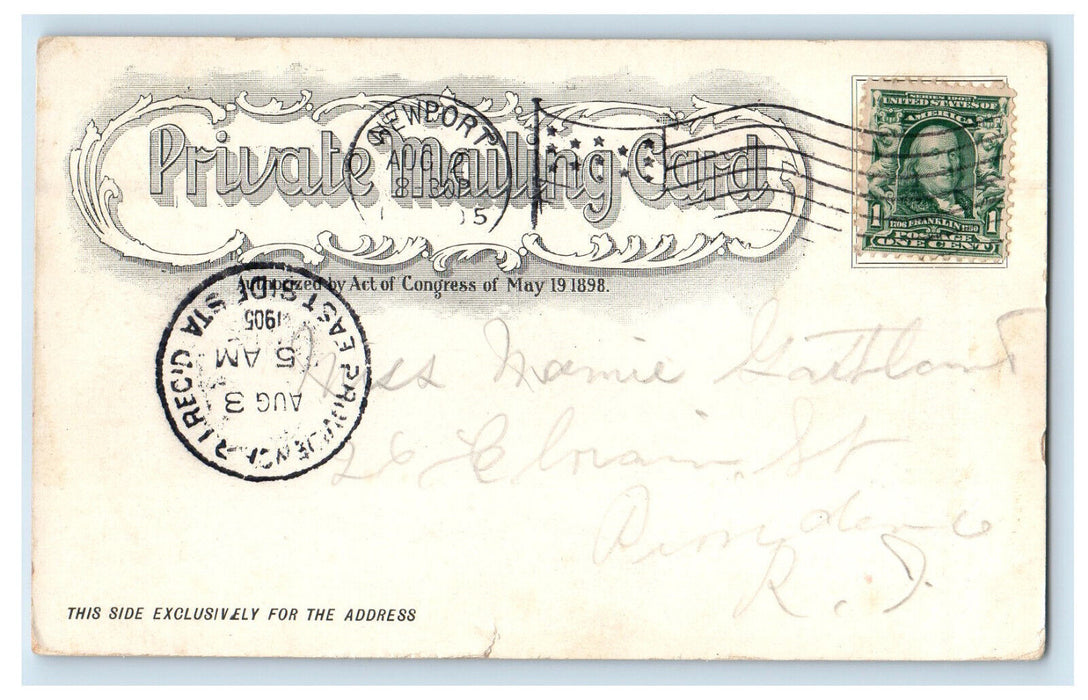 Private Mailing Card
Authorized by Act of Congress of May 19 1898.
NEWPORT
AUG 2
8 30P
SERIES 1902
UNITED STATES OF
AMERICA
1 1706 FRANKLIN 1790 1
POSTAGE
ONE CENT
EAST SIDE STA
1905
5 AM
AUG 3
PROVIDENCE, R.I. REC'D
Miss Mamie
26 St
Providence
R. I.
THIS SIDE EXCLUSIVELY FOR THE ADDRESS